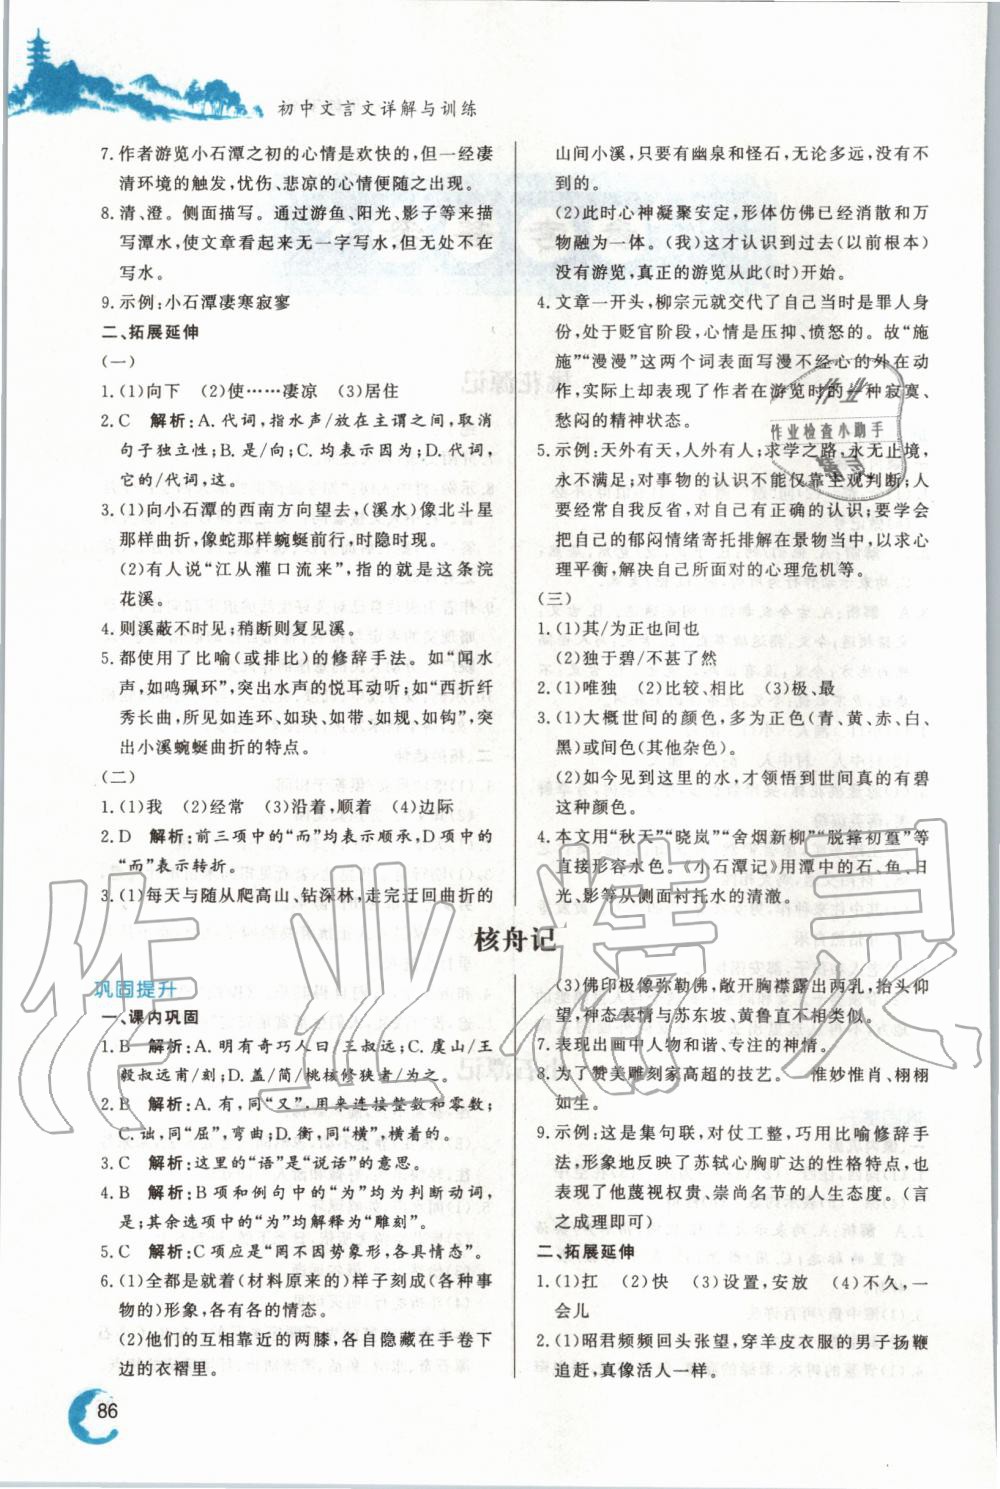 初中文言文详解与训练
7. 作者游览小石潭之初的心情是欢快的,但一经凄
清环境的触发,忧伤、悲凉的心情便随之出现。
8. 清、澄。侧面描写。通过游鱼、阳光、影子等来描
写潭水,使文章看来无一字写水,但又无处不在
写水。
9. 示例:小石潭凄寒寂寥
二、拓展延伸
(一)
1. (1)向下 (2)使……凄凉 (3)居住
2. C 解析:A. 代词,指水声/放在主谓之间,取消
句子独立性;B、C. 均表示因为;D. 代词,
它的/代词,这。
3. (1)向小石潭的西南方向望去,(溪水)像北斗星
那样曲折,像蛇那样蜿蜒前行,时隐时现。
(2)有人说“江从灌口流来”,指的就是这条浣
花溪。
4. 则溪蔽不时见;稍断则复见溪。
5. 都使用了比喻(或排比)的修辞手法。如“闻水
声,如鸣珮环”,突出水声的悦耳动听;如“西折纤
秀长曲,所见如连环、如玦、如带、如规、如钩”,突
出小溪蜿蜒曲折的特点。
(二)
1. (1)我 (2)经常 (3)沿着,顺着 (4)边际
2. D 解析:前三项中的“而”均表示顺承,D项中的
“而”表示转折。
3. (1)每天与随从爬高山、钻深林,走完迂回曲折的
山间小溪。只要有幽泉和怪石,无论多远,没有不
到的。
(2)此时心神凝聚安定,形体仿佛已经消散和万
物融为一体。(我)这才认识到过去(以前根本)
没有游览,真正的游览从此(时)开始。
4. 文章一开头,柳宗元就交代了自己当时是罪人身
份,处于贬官阶段,心情是压抑、愤怒的。故“施
施”“漫漫”这两个词表面写漫不经心的外在动
作,实际上却表现了作者在游览时的一种寂寞、
愁闷的精神状态。
5. 示例:天外有天,人外有人;求学之路,永无止境,
永不满足;对事物的认识不能仅靠主观判断;人
要经常自我反省,对自己有正确的认识;要学会
把自己的郁闷情绪寄托排解在景物当中,以求心
理平衡,解决自己所面对的心理危机等。
(三)
1. (1)其/为正也间也
(2)独于碧/不甚了然
2. (1)唯独 (2)比较、相比 (3)极、最
3. (1)大概世间的颜色,多为正色(青、黄、赤、白、
黑)或间色(其他杂色)。
(2)如今见到这里的水,才领悟到世间真的有碧
这种颜色。
4. 本文用“秋天”“晓岚”“舍烟新柳”“脱箨初篁”等
直接形容水色。《小石潭记》用潭中的石、鱼、日
光、影等从侧面衬托水的清澈。
核舟记
巩固提升
一、课内巩固
1. B 解析:A. 明有奇巧人曰/王叔远;C. 虞山/王
毅叔远甫/刻;D. 盖/简/桃核修狭者/为之。
2. B 解析:A. 有,同“又”,用来连接整数和零数;
C. 诎,同“屈”,弯曲;D. 衡,同“横”,横着的。
3. C 解析:这里的“语”是“说话”的意思。
4. B 解析:B项和例句中的“为”均为判断动词,
是;其余选项中的“为”均解释为“雕刻”。
5. C 解析:C项应是“罔不因势象形,各具情态”。
6. (1)全都是就着(材料原来的)样子刻成(各种事
物的)形象,各有各的情态。
(2)他们的互相靠近的两膝,各自隐藏在手卷下
边的衣褶里。
(3)佛印极像弥勒佛,敞开胸襟露出两乳,抬头仰
望,神态表情与苏东坡、黄鲁直不相类似。
7. 表现出画中人物和谐、专注的神情。
8. 为了赞美雕刻家高超的技艺。 惟妙惟肖、栩栩
如生。
9. 示例:这是集句联,对仗工整,巧用比喻修辞手
法,形象地反映了苏轼心胸旷达的性格特点,也
表现了他蔑视权贵、崇尚名节的人生态度。(言
之成理即可)
二、拓展延伸
1. (1)扛 (2)快 (3)设置,安放 (4)不久,一
会儿
2. (1)昭君频频回头张望,穿羊皮衣服的男子扬鞭
追赶,真像活人一样。
86
作业检查小助手
作业精灵